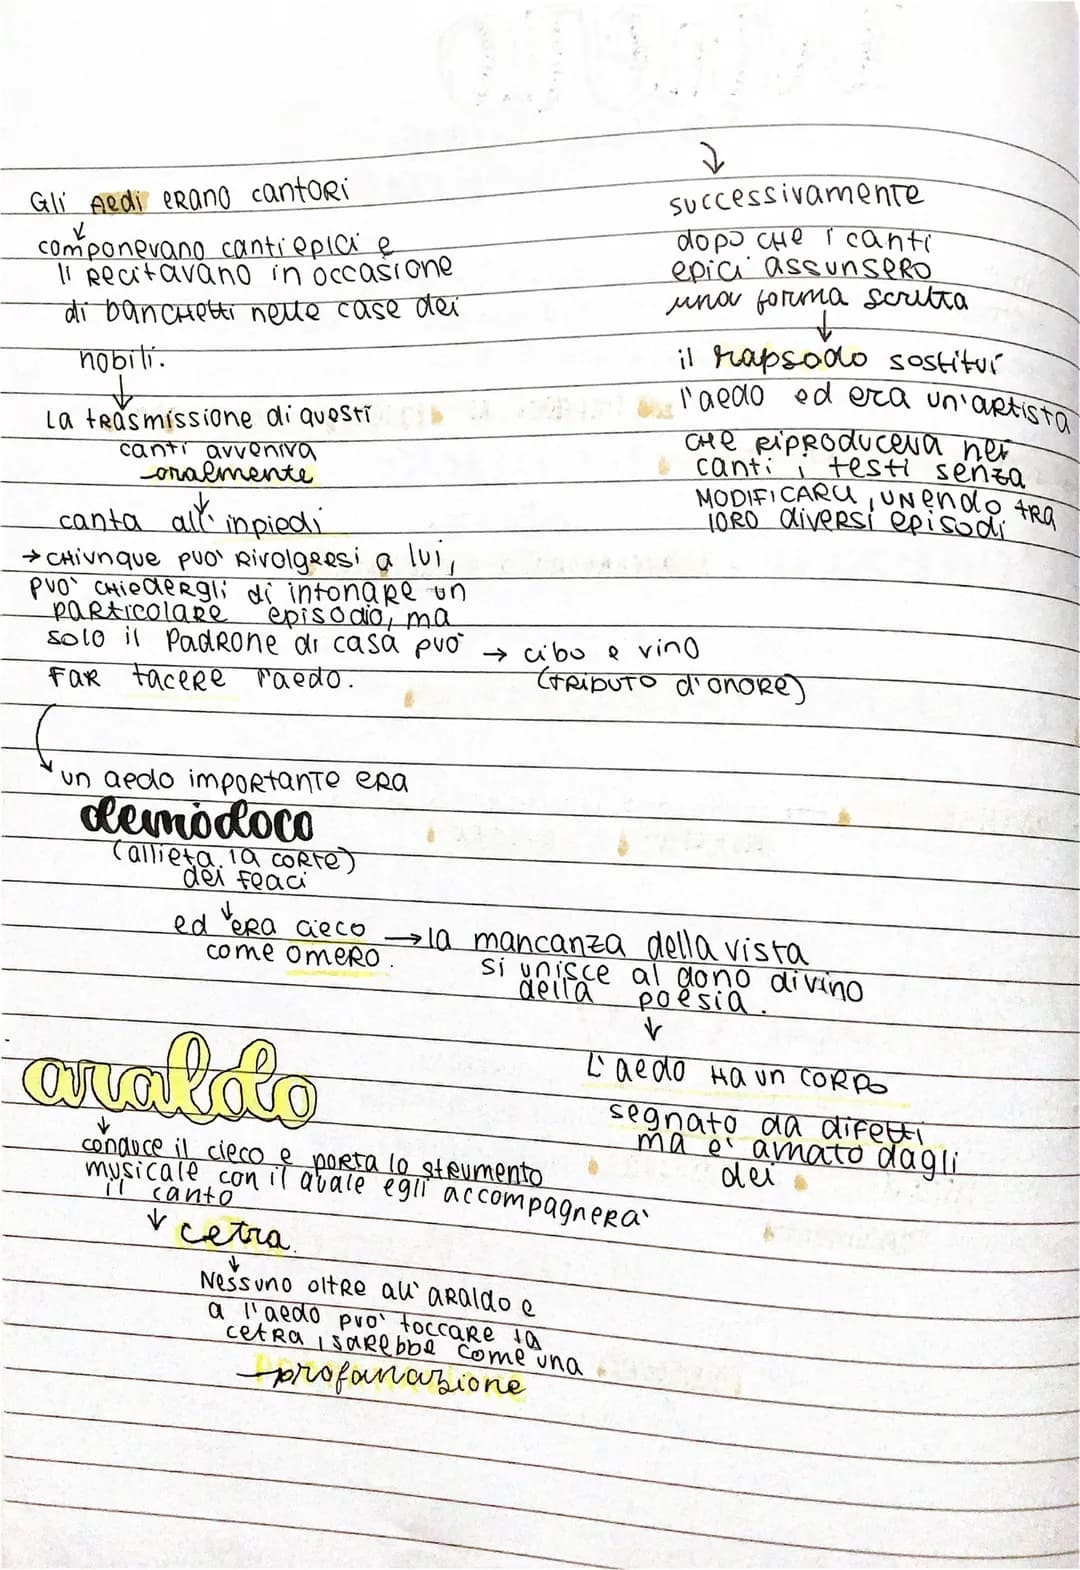 Gli Aedi erano cantori
componevano canti epici e
li recitavano in occasione
di banchetti nelle case dei
nobili.
La trasmissione di questi
canti avveniva
oralmente
canta all' inpiedi
→ chiunque può rivolgersi a lui,
può chiedergli di intonare un
particolare episodio, ma
solo il padrone di casa può → cibo e vino
far tacere l'aedo. (tributo d'onore)
successivamente
dopo che i canti
epici assunsero
una forma scritta
il rapsodo sostituì
l'aedo ed era un'artista
che riproduceva nei
canti i testi senza
modificarli, unendo tra
loro diversi episodi
un aedo importante era
demòdoco
(allieta la corte)
dei feaci
ed era cieco → la mancanza della vista
come omero. si unisce al dono divino
della poesia.
L'aedo ha un corpo
segnato da difetti
ma è amato dagli
dei
araldo
conduce il cieco e porta lo strumento
musicale con il quale egli accompagnerà
il canto
cetra.
Nessuno oltre all' araldo e
a l'aedo può toccare la
cetra, sarebbe come una
profanazione